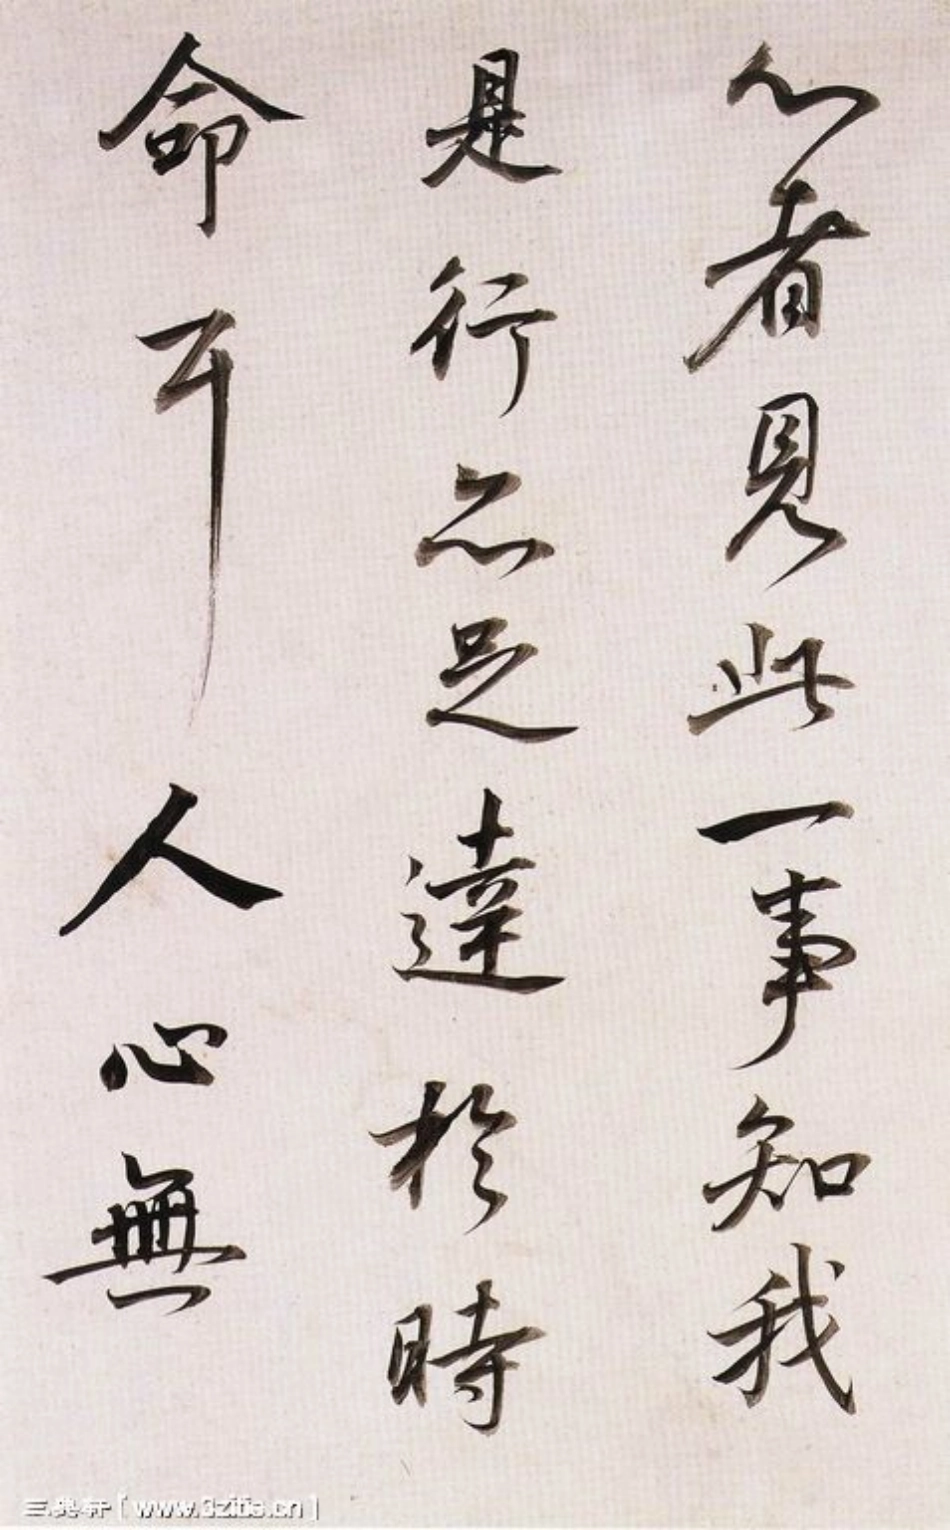 心者見此一事知我
是行亦足達於時
命耳人心無
三典轩[www.3zitie.cn]